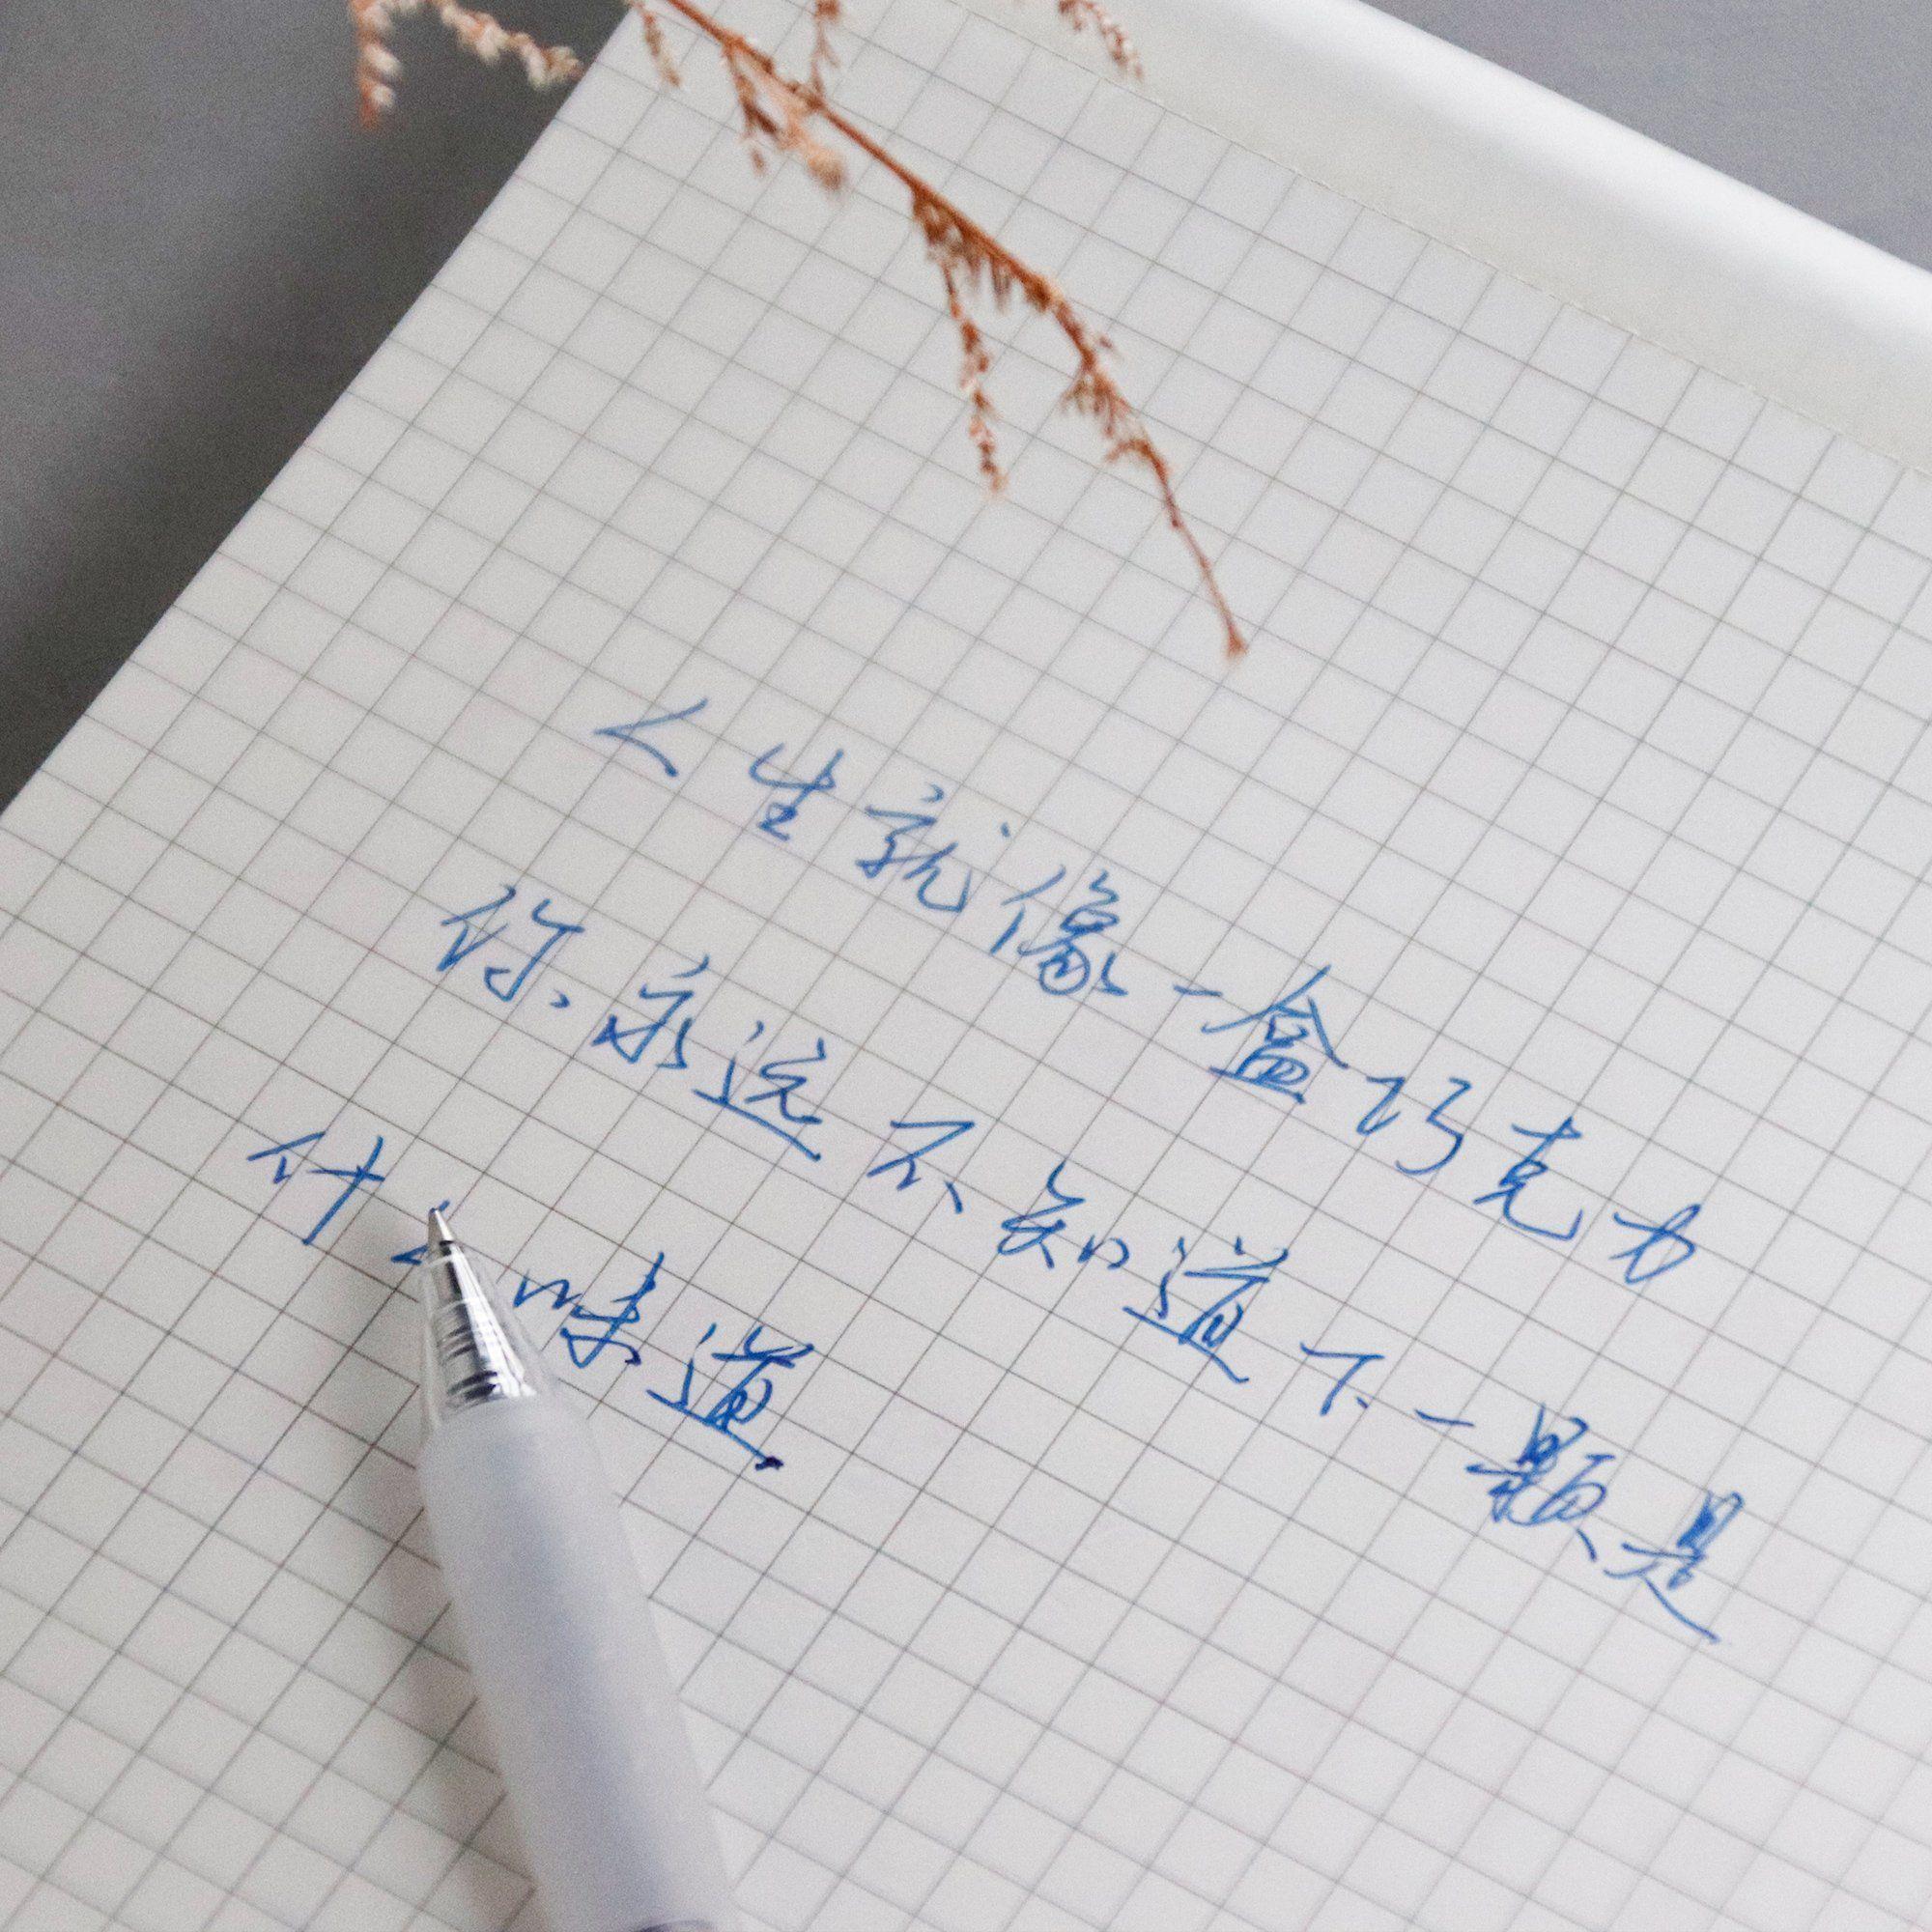 人生就像一盒巧克力
你永远不知道下一颗是
什么味道